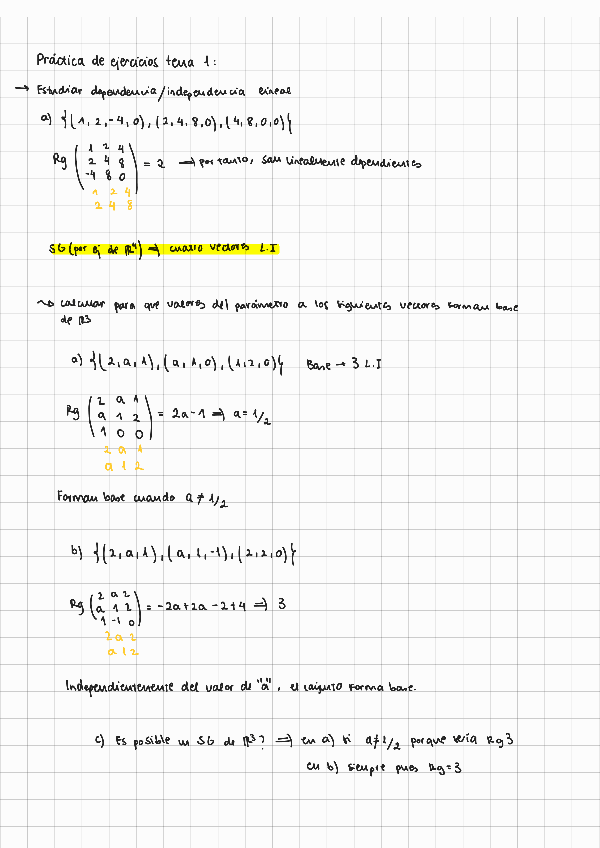 Práctica de ejercicios tema 1:
→ Estudiar dependencia/independencia lineal
a) {(1,2,-4,0),(2,4,8,0),(4,8,0,0)}
Rg (1 2 4
2 4 8
-4 8 0) = 2 → por tanto, san linealmente dependientes
1 2 4
2 4 8
SG (por ej de ℝ⁴) → cuatro vectores L.I
↝ calcular para que valores del parámetro a los siguientes vectores forman base
de ℝ3
a) {(2,a,1),(a,1,0),(1,2,0)} Base → 3 L.I
Rg (2 a 1
a 1 2
1 0 0) = 2a-1 ⇒ a = 1/2
2 a 1
a 1 2
Forman base cuando a ≠ 1/2
b) {(2,a,1),(a,1,-1),(2,2,0)}
Rg (2 a 2
a 1 2
1 -1 0) = -2a+2a-2+4 ⇒ 3
2 a 2
a 1 2
Independientemente del valor de "a", el conjunto forma base.
c) Es posible un SG de ℝ³? ⇒ en a) si a≠1/2 porque sería Rg 3
en b) siempre pues Rg=3